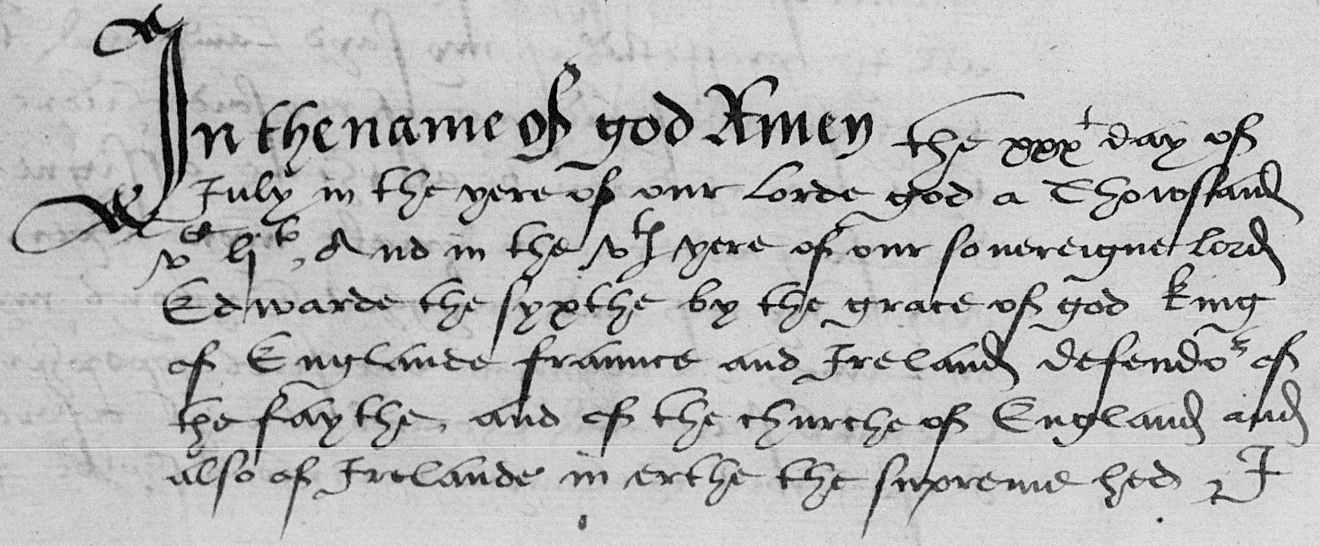 In the name of god Amen the xxxt day of
July in the yere of our Lorde god a Thowsand
vct ljto, And in the vth yere of our sovereigne lord
Edwarde the syxthe by the grace of god king
of Englande fraunce and Ireland defendor of
the faythe, and of the churche of England and
also of Irelande in erthe the supreme hed I